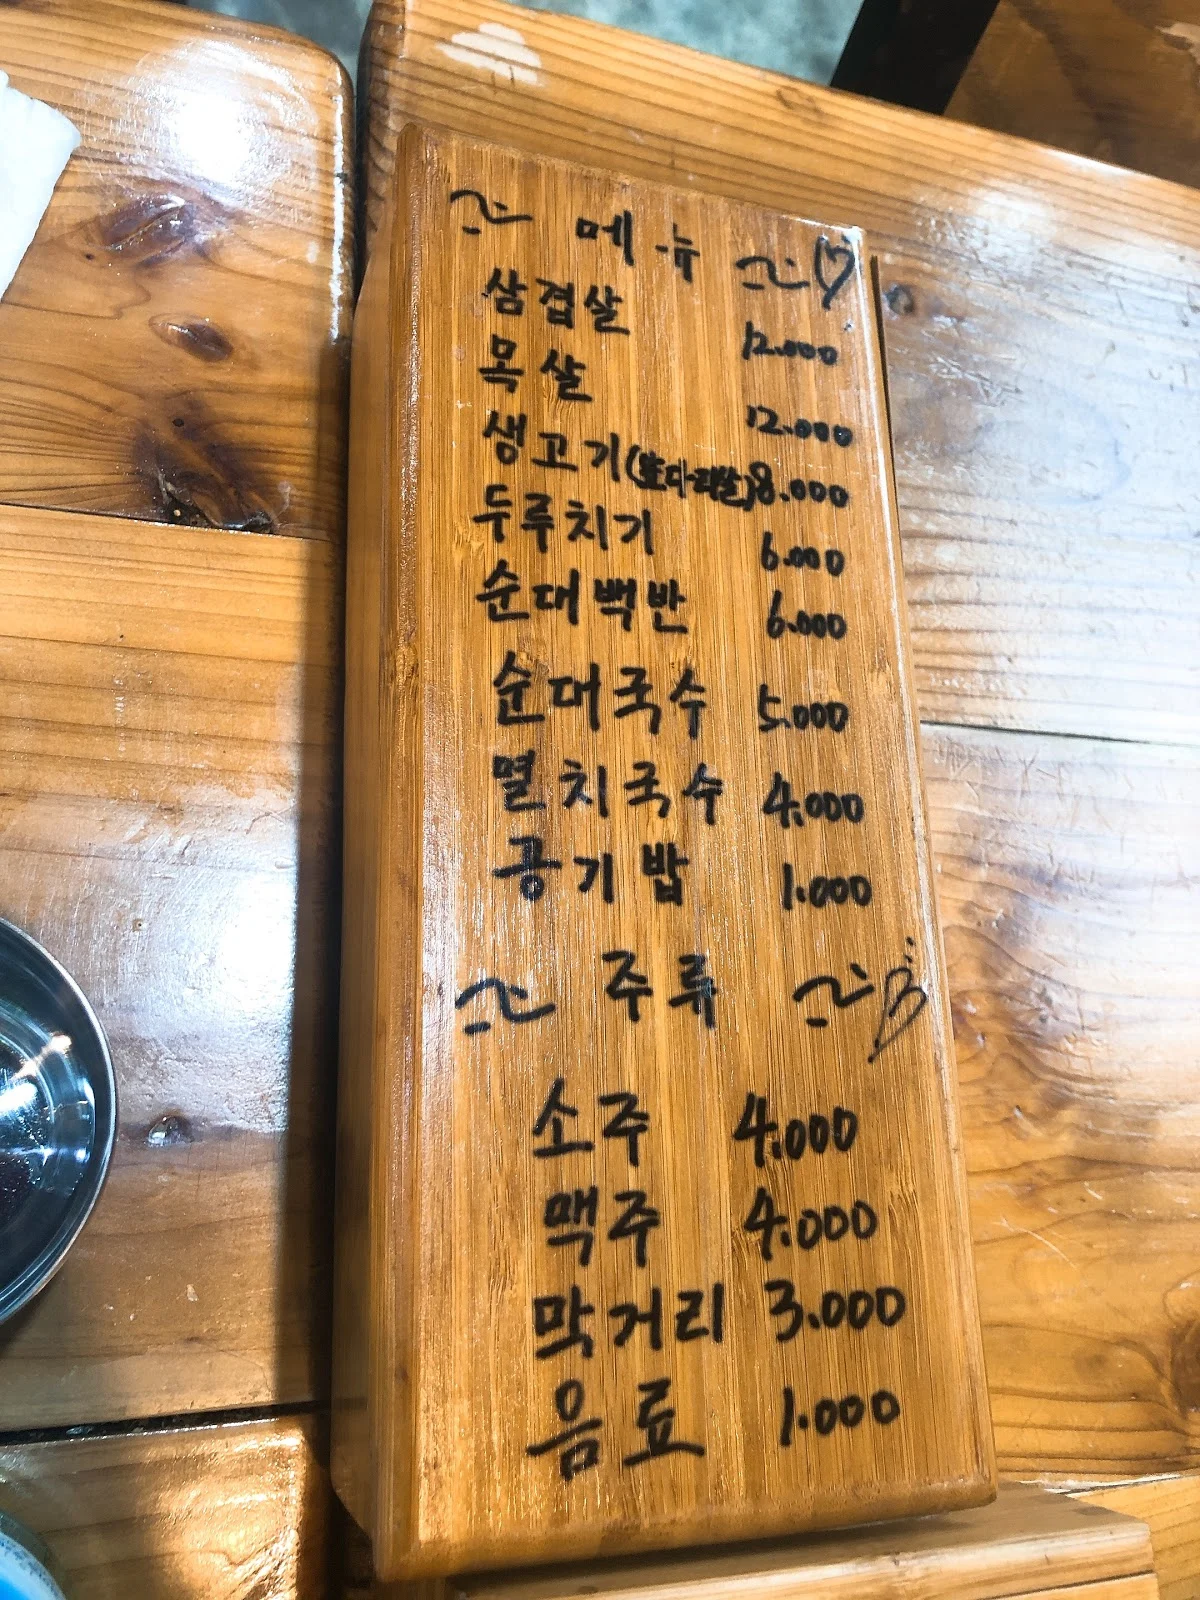 메뉴
삼겹살 12.000
목살 12.000
생고기(앞다리살) 8.000
두루치기 6.000
순대백반 6.000
순대국수 5.000
멸치국수 4.000
공기밥 1.000
주류
소주 4.000
맥주 4.000
막거리 3.000
음료 1.000